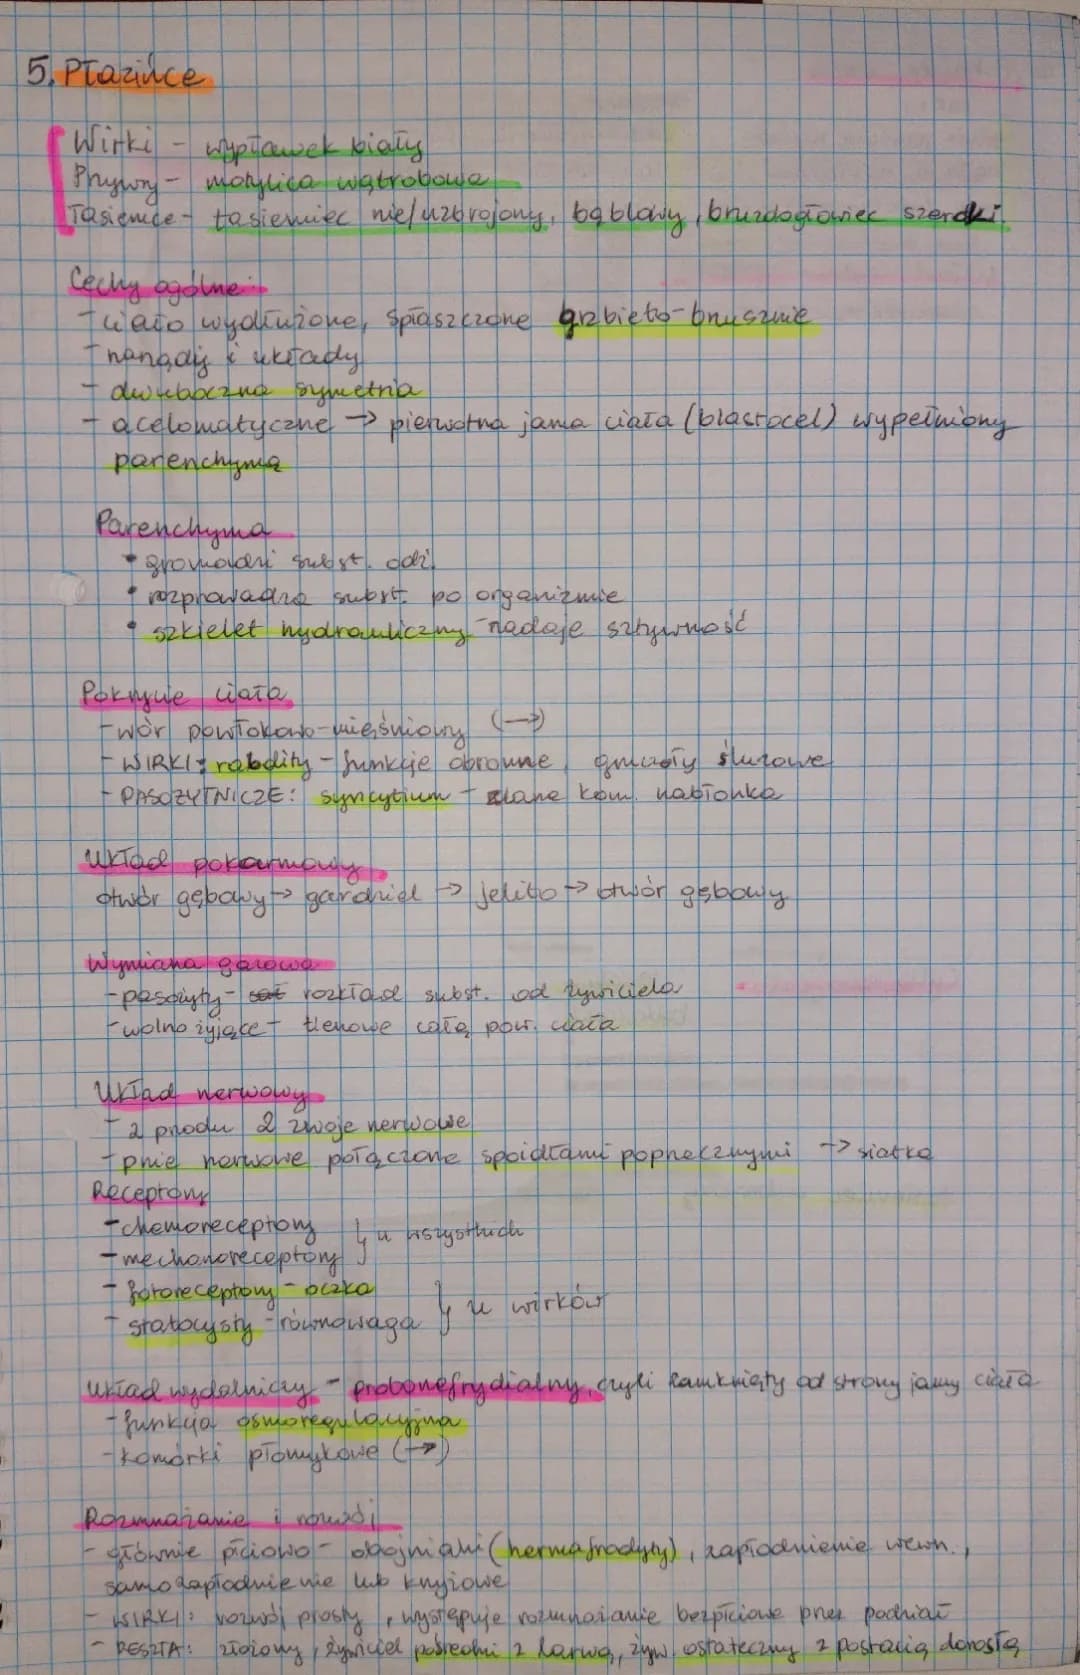 5. Płazińce
Wirki - wypławek biały
Przywry - motylica wątrobowa
Tasiemce - tasiemiec nie/uzbrojony, bąblowy, bruzdogłowiec szeroki
Cechy ogólne:
- ciało wydłużone, spłaszczone grzbieto-brusznie
- narządy i układy
- dwuboczna symetria
- acelomatyczne → pierwotna jama ciała (blastocel) wypełniony
parenchymą
Parenchyma
• gromadzi subst. odż.
• rozprowadza subst. po organizmie
• szkielet hydrauliczny - nadaje sztywność
Pokrycie ciała
- wór powłokowo-mięśniowy (→)
- WIRKI: rabdity - funkcje obronne, gruczoły śluzowe
- PASOŻYTNICZE: syncytium - zlane kom. nabłonka
Układ pokarmowy
otwór gębowy → gardziel → jelito → otwór gębowy
Wymiana gazowa
- pasożyty - rozkład subst. od żywiciela
- wolno żyjące - tlenowe całą pow. ciała
Układ nerwowy
- z przodu 2 zwoje nerwowe
- pnie nerwowe połączone spoidłami poprzecznymi → siatka
Receptory
- chemoreceptory
- mechanoreceptory } u wszystkich
- fotoreceptory - oczka
- statocysty - równowaga } u wirków
Układ wydalniczy - protonefrydialny, czyli zamknięty od strony jamy ciała
- funkcja osmoregulacyjna
- komórki płomykowe (→)
Rozmnażanie i rozwój
- głównie płciowo - obojniaki (hermafrodyty), zapłodnienie wewn.,
samozapłodnienie lub krzyżowe
- WIRKI: rozwój prosty, występuje rozmnażanie bezpłciowe przez podział
- RESZTA: złożony, żywiciel pośredni z larwą, żyw. ostateczny z postacią dorosłą